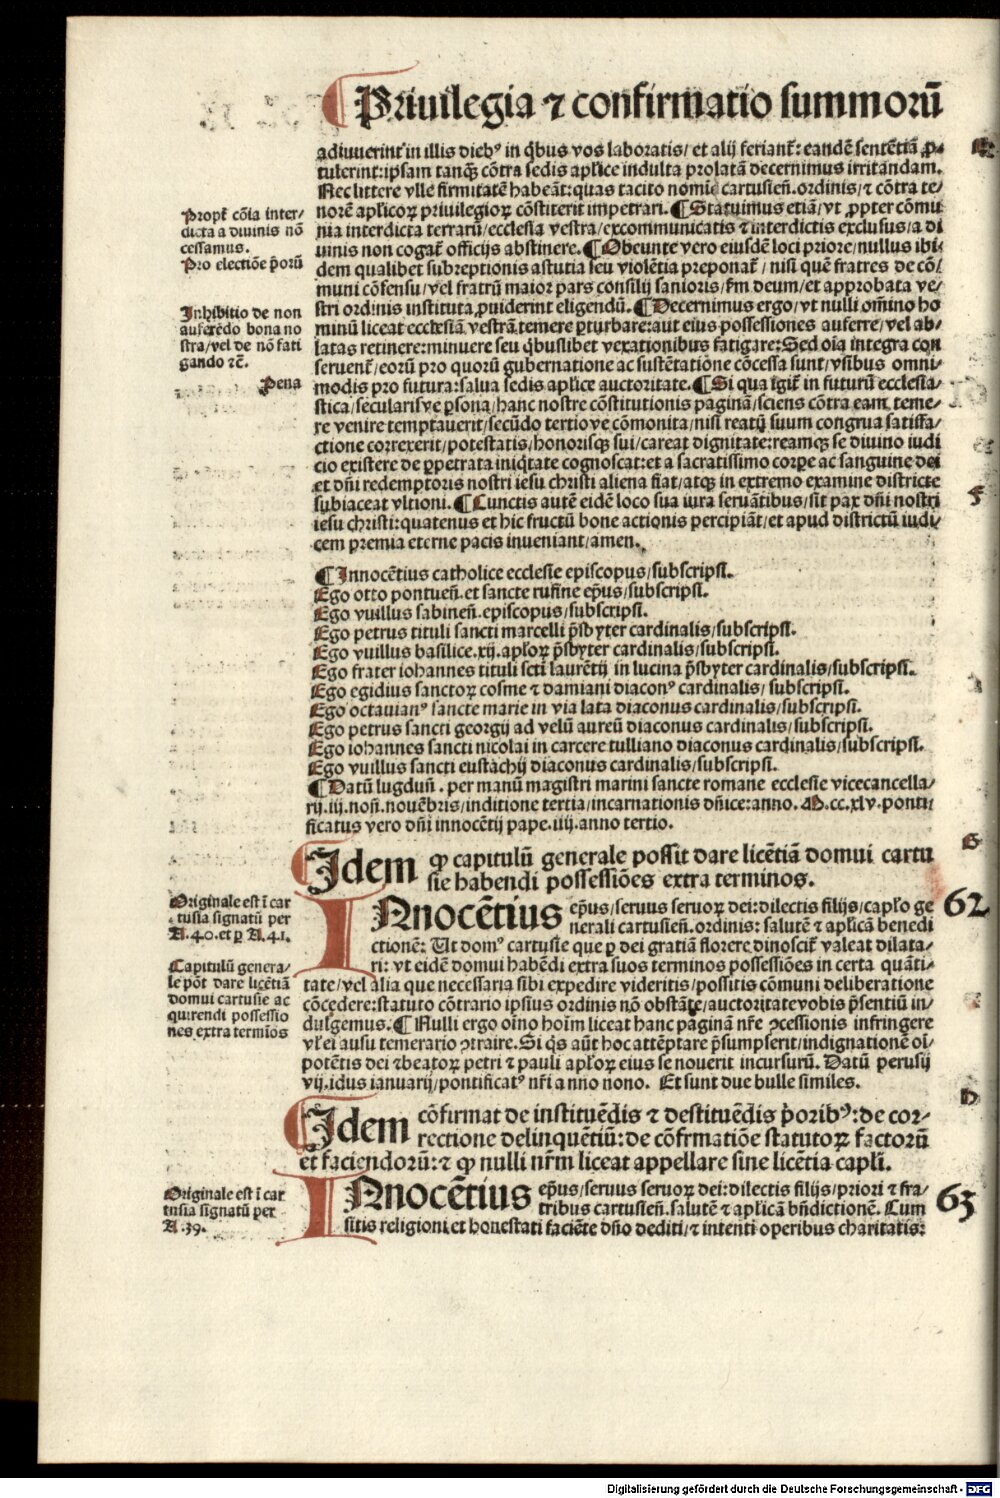 Priuilegia ⁊ confirmatio summorū
adiuuerint in illis dieb⁹ in q̄bus vos laboratis/ et alij feriant᷑: eandē sentētiā ꝓ-
tulerint: ipsam tanqȝ cōtra sedis aplice indulta prolatā decernimus irritandam.
Nec littere vlle firmitatē habeāt: quas tacito nomine cartusień. ordinis/ ⁊ cōtra te/
norē aplicoꝝ priuilegioꝝ cōstiterit impetrari. ¶Statuimus etiā/ vt ꝓpter cōmu
nia interdicta terrarū/ ecclesia vestra/ excommunicatis ⁊ interdictis exclusus/ a di
uinis non cogat᷑ officijs abstinere. ¶Obeunte vero eiusdē loci priore/ nullus ibi-
dem qualibet subreptionis astutia seu violētia preponat᷑/ nisi quē fratres de cō/
muni cōsensu/ vel fratrū maior pars consilij sanioris/ s̄m deum/ et approbata ve/
stri ordinis instituta ꝓuiderint eligendū. ¶Decernimus ergo/ vt nulli om̄ino ho
minū liceat ecclesiā vestrā temere ꝑturbare: aut eius possessiones auferre/ vel ab-
latas retinere: minuere seu q̄buslibet vexationibus fatigare: Sed oīa integra con
seruent᷑/ eorū pro quorū gubernatione ac sustētatione cōcessa sunt/ vsibus omni-
modis pro futura: salua sedis aplice auctoritate. ¶Si qua igit᷑ in futurū ecclesia-
stica/ secularisve ꝑsona/ hanc nostre cōstitutionis paginā/ sciens cōtra eam teme/
re venire temptauerit/ secūdo tertiove cōmonita/ nisi reatū suum congrua satisfa/
ctione correxerit/ potestatis/ honorisqȝ sui/ careat dignitate: reamqȝ se diuino iudi
cio existere de ꝑpetrata iniq̄tate cognoscat: et a sacratissimo corpe ac sanguine dei
et dn̄i redemptoris nostri iesu christi aliena fiat/ atqȝ in extremo examine districte
subiaceat vltioni. ¶Cunctis autē eidē loco sua iura seruātibus/ sit pax dn̄i nostri
iesu christi: quatenus et hic fructū bone actionis percipiāt/ et apud districtū iudi-
cem premia eterne pacis inueniant/ amen.
Propt᷑ cōia inter/
dicta a diuinis nō
cessamus.
Pro electiōe p̄orū
Inhibitio de non
auferēdo bona no
stra/ vel de nō fati
gando ⁊c̄.
Pena
¶Innocētius catholice ecclesie episcopus/ subscripsi.
Ego otto pontueń. et sancte rufine ep̄us/ subscripsi.
Ego vuillus sabineń. episcopus/ subscripsi.
Ego petrus tituli sancti marcelli p̄sbyter cardinalis/ subscripsi.
Ego vuillus basilice. xij. aploꝝ p̄sbyter cardinalis/ subscripsi.
Ego frater iohannes tituli scti laurētij in lucina p̄sbyter cardinalis/ subscripsi.
Ego egidius sanctoꝝ cosme ⁊ damiani diacon⁹ cardinalis/ subscripsi.
Ego octauian⁹ sancte marie in via lata diaconus cardinalis/ subscripsi.
Ego petrus sancti georgij ad velū aureū diaconus cardinalis/ subscripsi.
Ego iohannes sancti nicolai in carcere tulliano diaconus cardinalis/ subscripsi.
Ego vuillus sancti eustachij diaconus cardinalis/ subscripsi.
¶Datū lugduń. per manū magistri marini sancte romane ecclesie vicecancella/
rij. iij. noń. nouēbris/ inditione tertia/ incarnationis dn̄ice: anno. M.cc.xlv. ponti
ficatus vero dn̄i innocētij pape. iiij. anno tertio.
Idem ꝙ capitulū generale possit dare licētiā domui cartu
sie habendi possessiōes extra terminos.
62
INnocētius ep̄us/ seruus seruoꝝ dei: dilectis filijs/ caplo ge
nerali cartusień. ordinis: salutē ⁊ aplicā benedi
ctionē: Ut dom⁹ cartusie que ꝑ dei gratiā florere dinoscit᷑ valeat dilata-
ri: vt eidē domui habēdi extra suos terminos possessiōes in certa quāti-
tate/ vel alia que necessaria sibi expedire videritis/ possitis cōmuni deliberatione
cōcedere: statuto cōtrario ipsius ordinis nō obstāte/ auctoritate vobis p̄sentiū in/
dulgemus. ¶Nulli ergo oīno hoīm liceat hanc paginā nr̄e ꝯcessionis infringere
vl ei ausu temerario ꝯtraire. Si q̄s aūt hoc attēptare p̄sumpserit/ indignationē oī-
potētis dei ⁊ beatoꝝ petri ⁊ pauli aploꝝ eius se nouerit incursurū. Datū perusij
vij. idus ianuarij/ pontificat⁹ nr̄i anno nono. Et sunt due bulle similes.
Originale est ī car
tusia signatū per
A. 40. et ꝑ A. 41.
Capitulū genera/
le pōt dare licētiā
domui cartusie ac
quirendi possessio
nes extra termios
Idem cōfirmat de instituēdis ⁊ destituēdis p̄orib⁹: de cor/
rectione delinquētiū: de cōfrmatiōe statutoꝝ factorū
et faciendorū: ⁊ ꝙ nulli nr̄m liceat appellare sine licētia capli.
63
INnocētius ep̄us/ seruus seruoꝝ dei: dilectis filijs/ priori ⁊ fra/
tribus cartusień. salutē ⁊ aplicā bn̄dictionē. Cum
sitis religioni et honestati faciēte dn̄o dediti/ ⁊ intenti operibus charitatis:
Originale est ī car
tusia signatū per
A. 39.
F
G
D
Digitalisierung gefördert durch die Deutsche Forschungsgemeinschaft - DFG